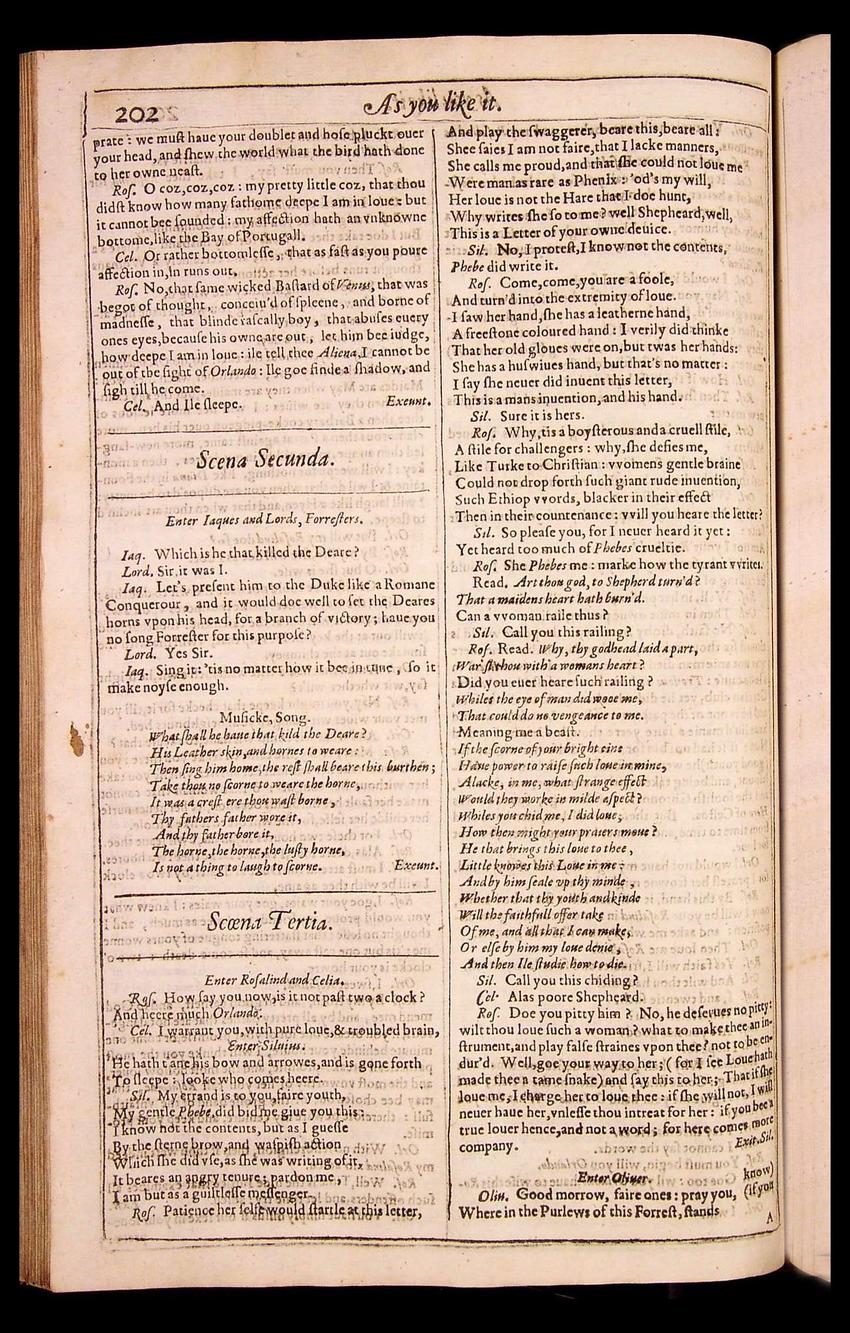 202
As you like it.
prate: we must haue your doublet and hose pluckt ouer
your head, and shew the world what the bird hath done
to her owne neast.
Ros. O coz, coz, coz: my pretty little coz, that thou
didst know how many fathome deepe I am in loue: but
it cannot bee sounded: my affection hath an vnknowne
bottome, like the Bay of Portugall.
Cel. Or rather bottomlesse, that as fast as you poure
affection in, in runs out.
Ros. No, that same wicked Bastard of Venus, that was
begot of thought, conceiu'd of spleene, and borne of
madnesse, that blinde rascally boy, that abuses euery
ones eyes, because his owne are out, let him bee iudge,
how deepe I am in loue: ile tell thee Aliena, I cannot be
out of the sight of Orlando: Ile goe finde a shadow, and
sigh till he come.
Cel. And Ile sleepe. Exeunt.
Scena Secunda.
Enter Iaques and Lords, Forresters.
Iaq. Which is he that killed the Deare?
Lord. Sir, it was I.
Iaq. Let's present him to the Duke like a Romane
Conquerour, and it would doe well to set the Deares
horns vpon his head, for a branch of victory; haue you
no song Forrester for this purpose?
Lord. Yes Sir.
Iaq. Sing it: 'tis no matter how it bee in tune, so it
make noyse enough.
Musicke, Song.
What shall he haue that kild the Deare?
His Leather skin, and hornes to weare:
Then sing him home, the rest shall beare this burthen;
Take thou no scorne to weare the horne,
It was a crest ere thou wast borne,
Thy fathers father wore it,
And thy father bore it,
The horne, the horne, the lusty horne,
Is not a thing to laugh to scorne. Exeunt.
Scœna Tertia.
Enter Rosalind and Celia.
Ros. How say you now, is it not past two a clock?
And heere much Orlando.
Cel. I warrant you, with pure loue, & troubled brain,
Enter Siluius.
He hath t'ane his bow and arrowes, and is gone forth
To sleepe: looke who comes heere.
Sil. My errand is to you, faire youth,
My gentle Phebe, did bid me giue you this:
I know not the contents, but as I guesse
By the sterne brow, and waspish action
Which she did vse, as she was writing of it,
It beares an angry tenure; pardon me,
I am but as a guiltlesse messenger.
Ros. Patience her selfe would startle at this letter,
And play the swaggerer, beare this, beare all:
Shee saies I am not faire, that I lacke manners,
She calls me proud, and that she could not loue me
Were man as rare as Phenix: 'od's my will,
Her loue is not the Hare that I doe hunt,
Why writes she so to me? well Shepheard, well,
This is a Letter of your owne deuice.
Sil. No, I protest, I know not the contents,
Phebe did write it.
Ros. Come, come, you are a foole,
And turn'd into the extremity of loue.
I saw her hand, she has a leatherne hand,
A freestone coloured hand: I verily did thinke
That her old gloues were on, but twas her hands:
She has a huswiues hand, but that's no matter:
I say she neuer did inuent this letter,
This is a mans inuention, and his hand.
Sil. Sure it is hers.
Ros. Why, tis a boysterous and a cruell stile,
A stile for challengers: why, she defies me,
Like Turke to Christian: vvomens gentle braine
Could not drop forth such giant rude inuention,
Such Ethiop vvords, blacker in their effect
Then in their countenance: vvill you heare the letter?
Sil. So please you, for I neuer heard it yet:
Yet heard too much of Phebes crueltie.
Ros. She Phebes me: marke how the tyrant vvrites.
Read. Art thou god, to Shepherd turn'd?
That a maidens heart hath burn'd.
Can a vvoman raile thus?
Sil. Call you this railing?
Ros. Read. Why, thy godhead laid a part,
War'st thou with a womans heart?
Did you euer heare such railing?
Whiles the eye of man did wooe me,
That could do no vengeance to me.
Meaning me a beast.
If the scorne of your bright eine
Haue power to raise such loue in mine,
Alacke, in me, what strange effect
Would they worke in milde aspect?
Whiles you chid me, I did loue,
How then might your praiers moue?
He that brings this loue to thee,
Little knowes this Loue in me:
And by him seale vp thy minde,
Whether that thy youth and kinde
Will the faithfull offer take
Of me, and all that I can make,
Or else by him my loue denie,
And then Ile studie how to die.
Sil. Call you this chiding?
Cel. Alas poore Shepheard.
Ros. Doe you pitty him? No, he deserues no pitty:
wilt thou loue such a woman? what to make thee an in-
strument, and play false straines vpon thee? not to be en-
dur'd. Well, goe your way to her; (for I see Loue hath
made thee a tame snake) and say this to her; That if she
loue me, I charge her to loue thee: if she will not, I will
neuer haue her, vnlesse thou intreat for her: if you bee a
true louer hence, and not a word; for here comes more
company. Exit. Sil.
Enter Oliuer.
Oliu. Good morrow, faire ones: pray you, (if you
know)
Where in the Purlews of this Forrest, stands
A